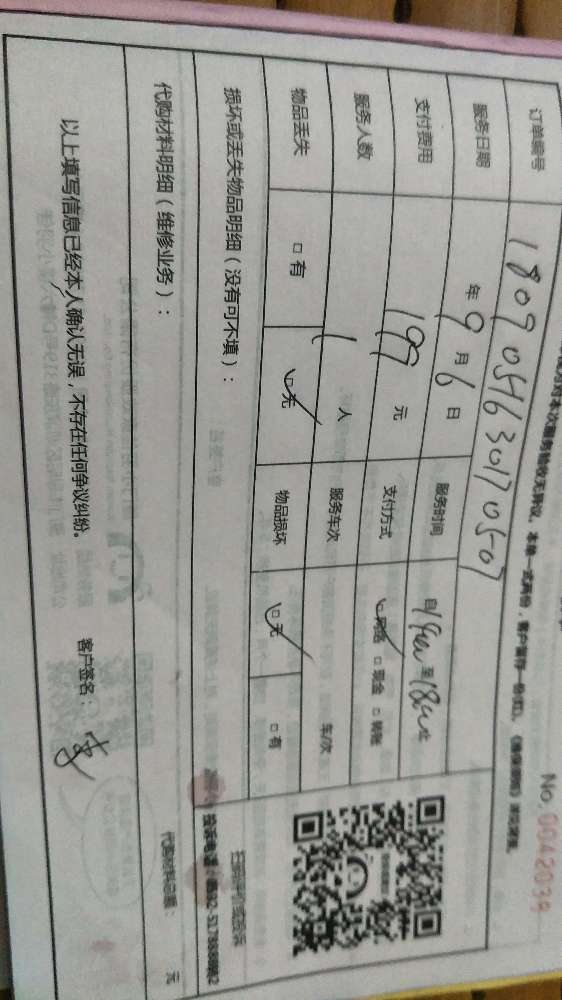 No. 0042039
对本次服务验收无异议。本单一式两份，客户留存一份
订单编号 1809054630170507
服务日期 年 9 月 6 日 服务时间 自 14:00 至 18:00
支付费用 197 元 支付方式 □网络 □现金 □转账
服务人数 1 人 服务车次 车/次
物品丢失 □有 □无 物品损坏 □无 □有
损坏或丢失物品明细（没有可不填）：
扫码评价或投诉
代购材料明细（维修业务）： 代购材料总额： 元
以上填写信息已经本人确认无误，不存在任何争议纠纷。 客户签名：